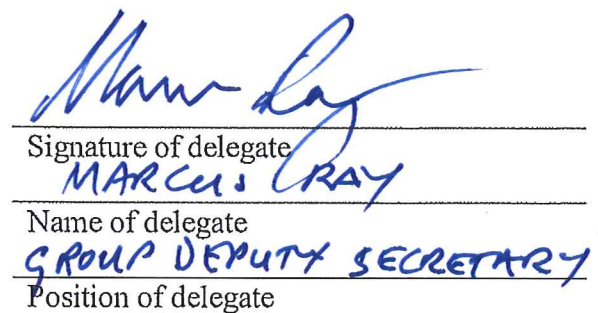 Signature of delegate
MARCUS RAY
Name of delegate
GROUP DEPUTY SECRETARY
Position of delegate